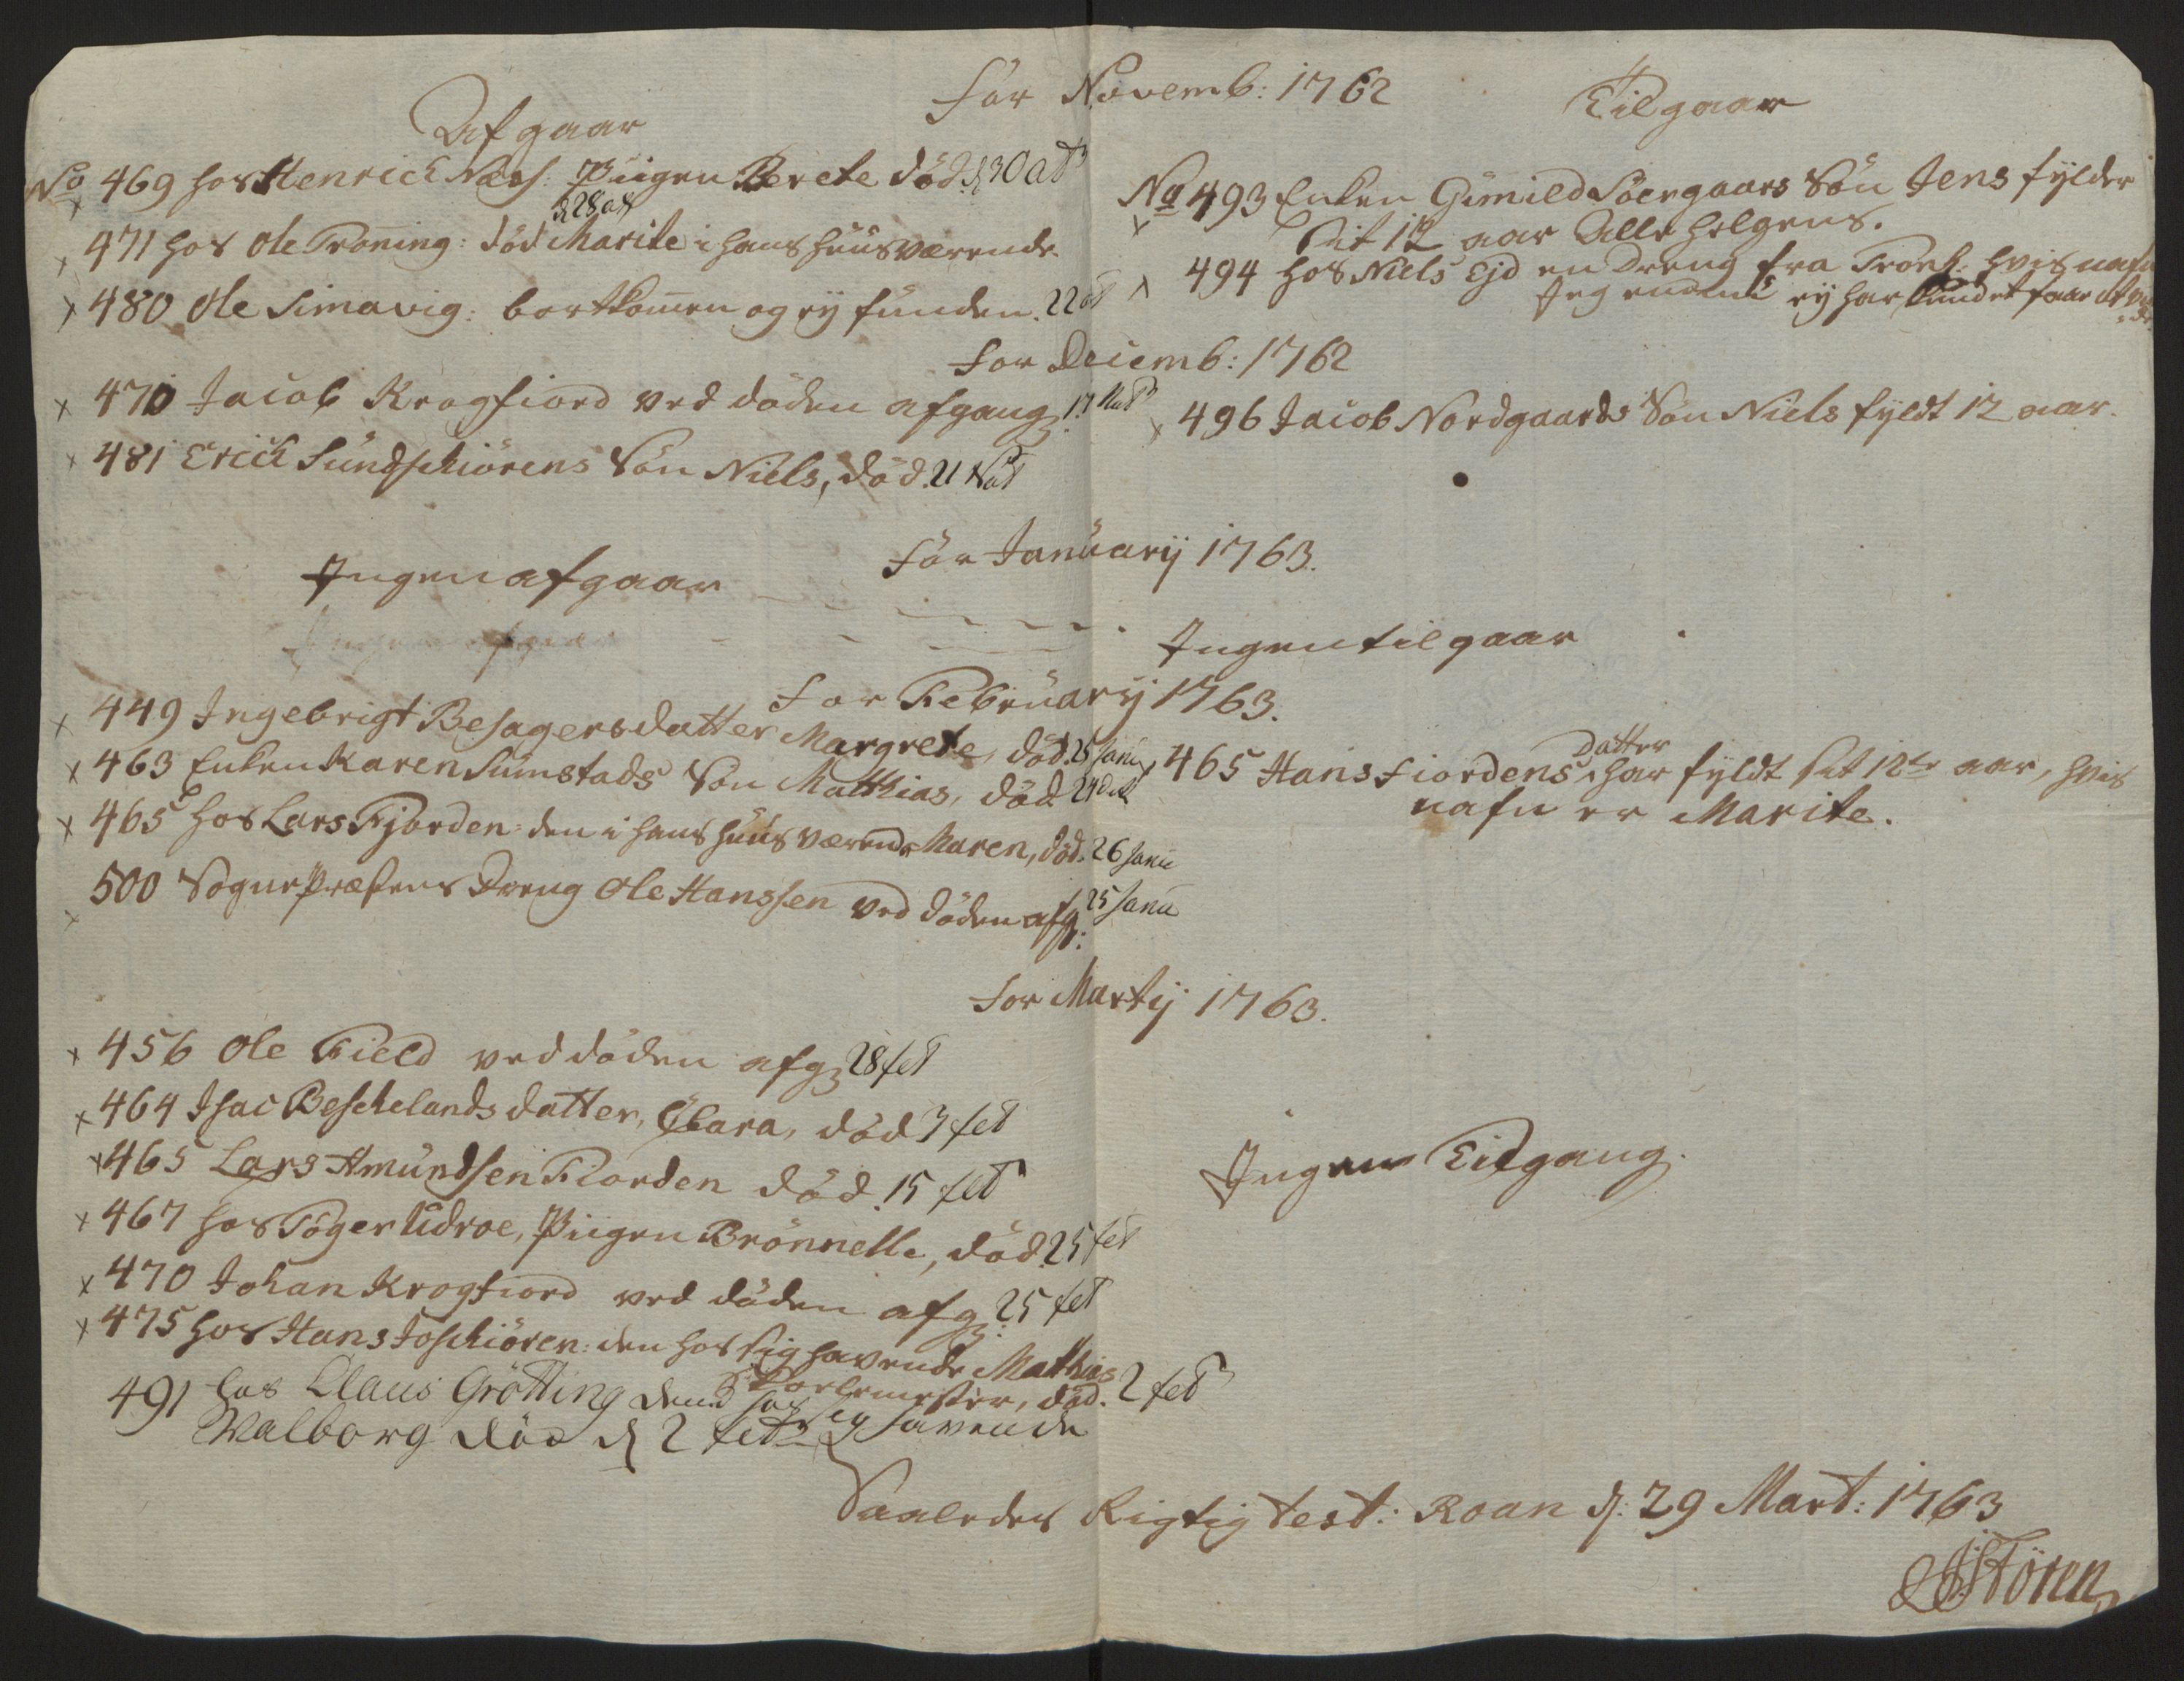 for Novemb: 1762
Afgaar
No 469 hos Henrich Næss: Piigen Berete død. d 30 8br
d 28 8br
471 hos Ole Troning: død Marite i hans huus værende
480 Ole Simavig: bortkommen og ey funden. 22
Tilgaar
No 493 Enken Gunild Sörgaars Sön Jens fylder
sit 12 aar Alle helgens.
494 hos Niels Ejd en dreng fra Tronh: hvis nafn
jeg endnu ey har kundet faae at vide.
for Decemb: 1762
470 Jacob Kragfiord ved döden afgang. 17
481 Erich Sundschiörens Sön Niels, död. 21
496 Jacob Nordgaards Sön Niels fyldt 12 aar.
for Januarij 1763.
Ingen afgaar
Ingen tilgaar
for Februarij 1763.
449 Ingebrigt Besagers datter Margrete, död. 25 Janu
463 Enken Karen Sumstads Sön Matthias, död 24 dito
465 hos Lars Fjorden: den i hans huus værende Maren, död. 26 Janu
500 Sogne Præstens Dreng Ole Hanssen ved döden afg: 25 Janu
465 Hans Fiordens datter har fyldt sit 12te aar, hvis
nafn er Marite.
for Martij 1763.
456 Ole Field ved döden afg 28 feb
464 Isac Beschelands datter, Clara, död 3 feb
465 Lars Amundsen Fiorden död. 15 feb
467 hos Töger Udroe, Piigen Brönnelle, död. 25 feb
470 Johan Kragfiord ved döden afg. 25 feb
475 hos Hans Foschiören: den hos sig havende Mathias
Skolemester, död. 2 feb
491 hos Claus Grötting den hos sig havende
Walborg död d 2 feb
Ingen Tilgang.
Saaledes Rigtig test: Roan d: 29 Mart: 1763
Stören